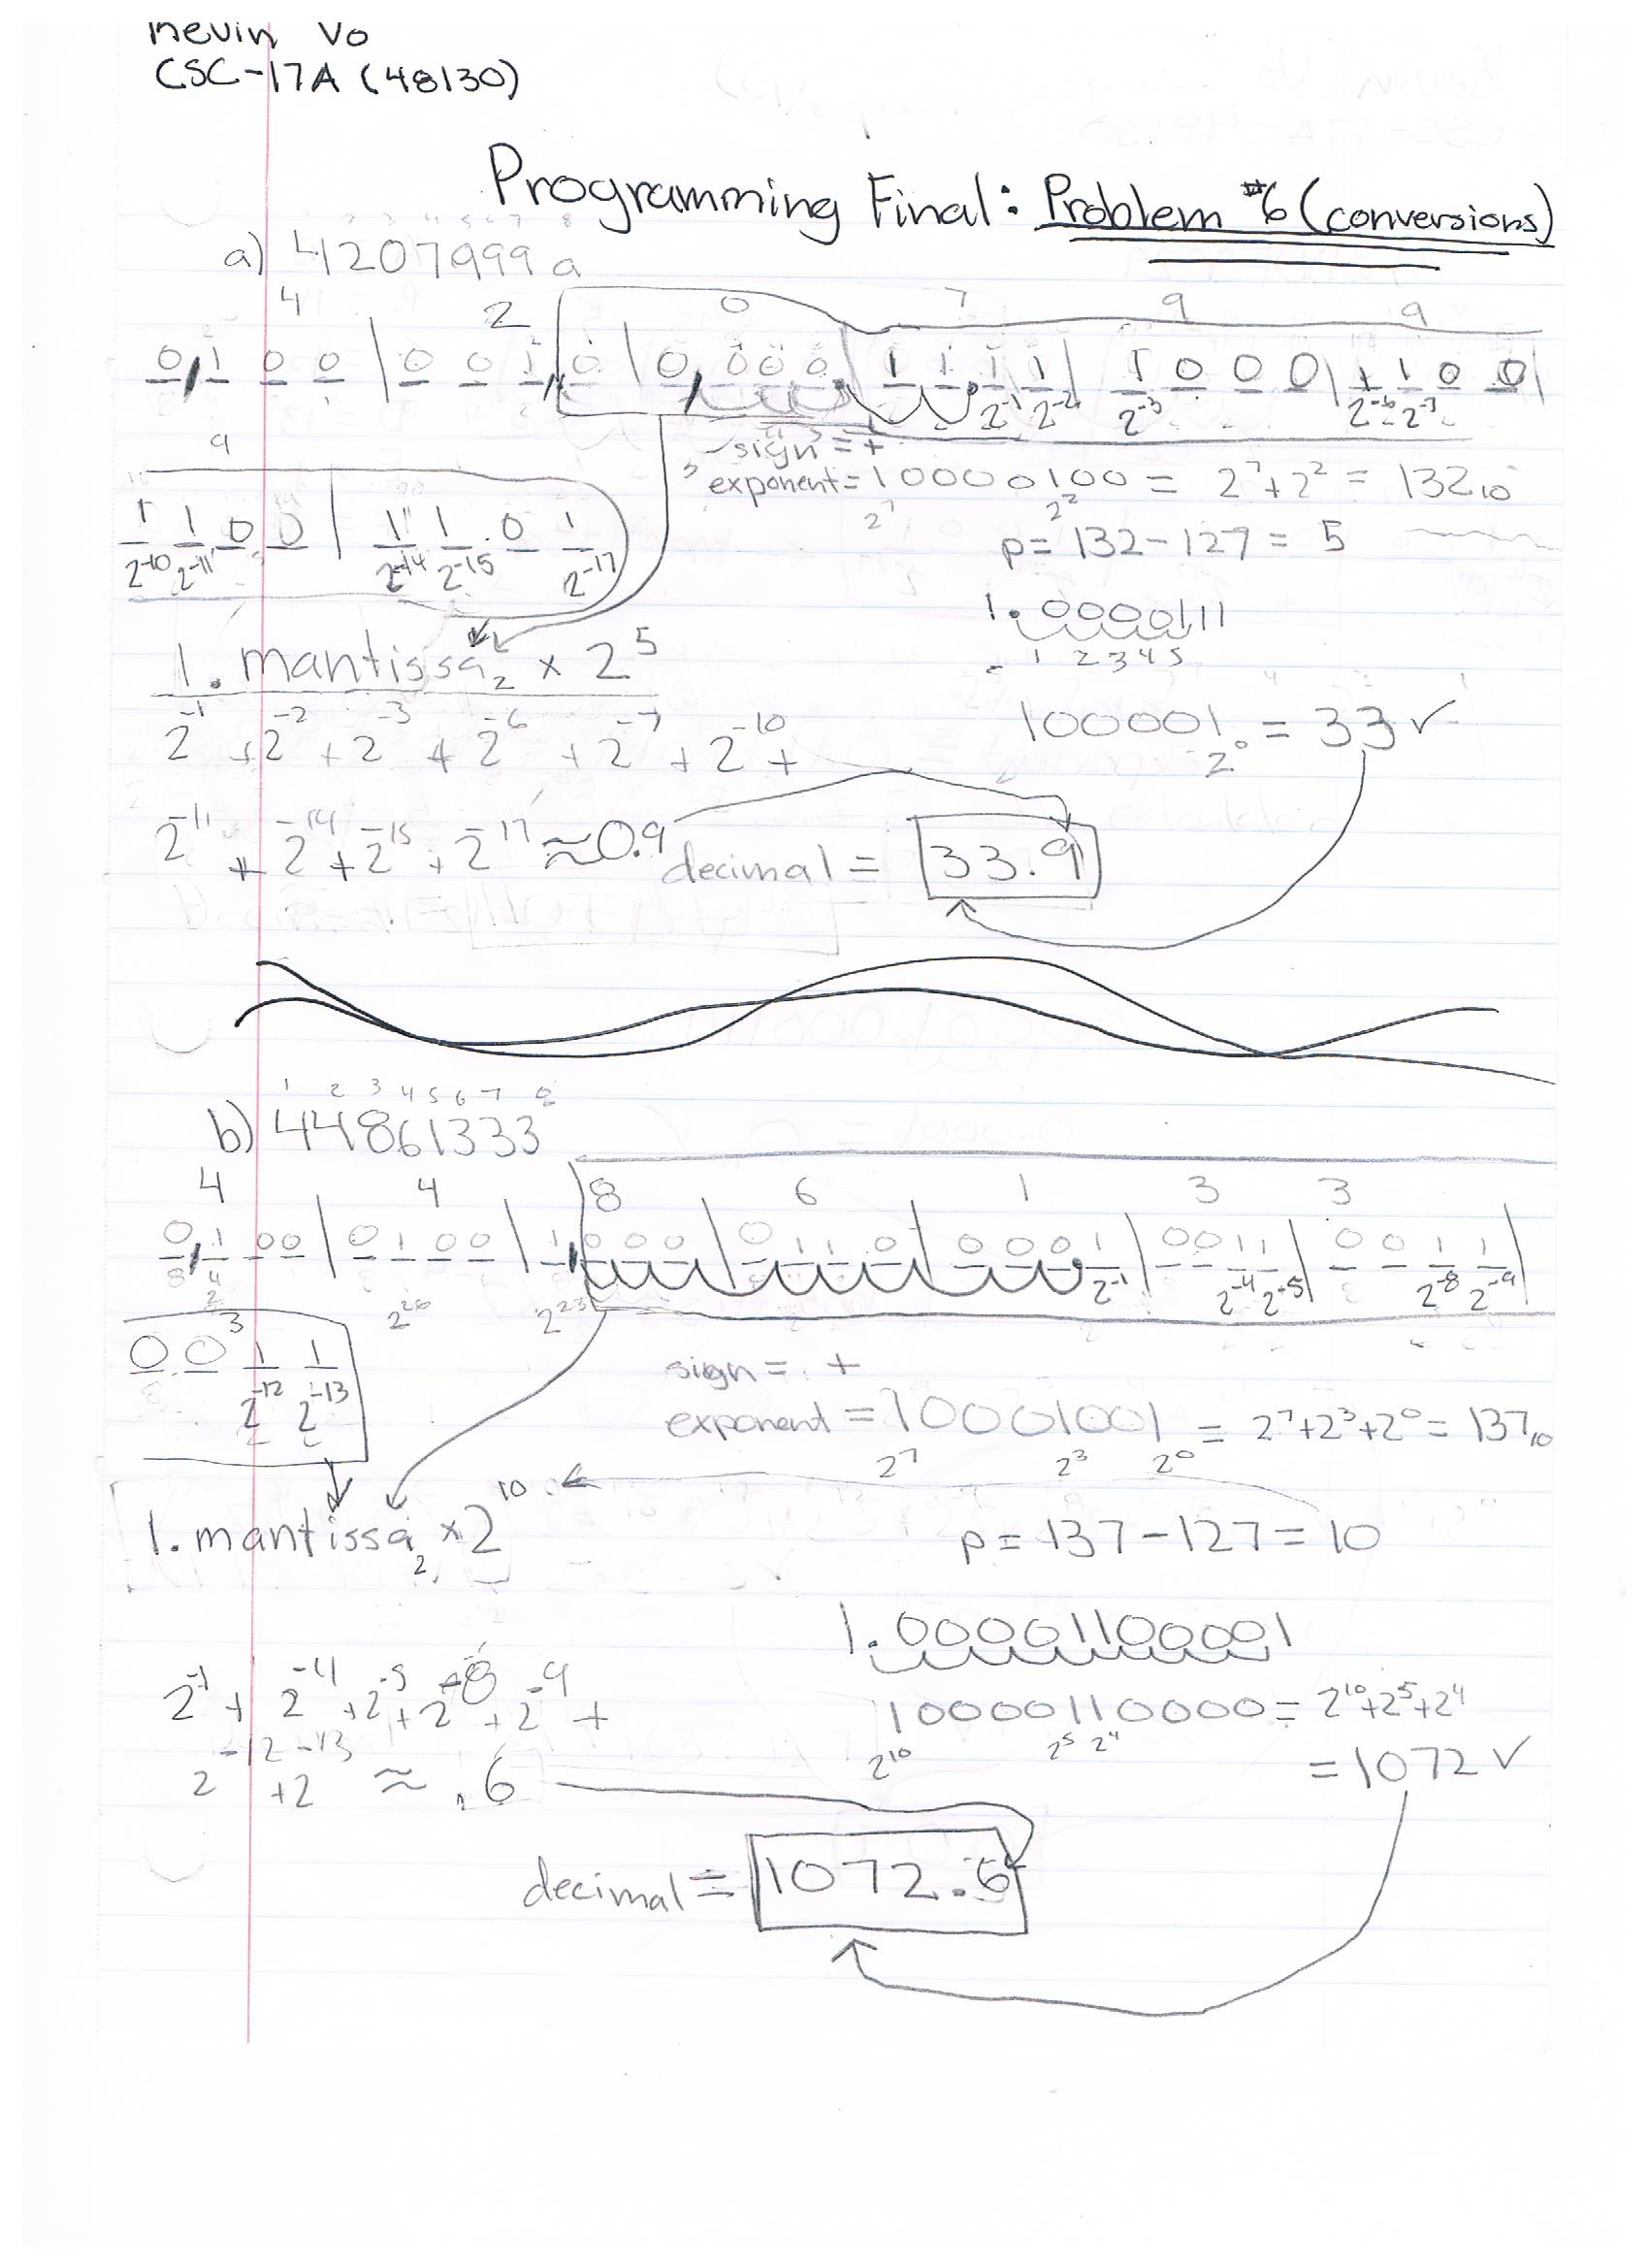 Kevin Vo
CSC-17A (48130)
Programming Final: Problem #6 (conversions)
a) 4207999a
4 2 0 7 9 9
0 1 0 0 | 0 0 1 0 | 0 0 0 0 | 1 1 1 1 | 1 0 0 0 | 1 1 0 0 |
2^-1 2^-2 2^-3 2^-6 2^-7
9
sign = +
exponent = 10000100 = 2^7 + 2^2 = 132₁₀
2^7 2^2
1 1 0 0 | 1 1 0 1
2^-10 2^-11 2^-14 2^-15 2^-17
p = 132 - 127 = 5
1.0000111
1 2 3 4 5
1. mantissa₂ x 2^5
100001 = 33 ✓
2^0
2^-1 + 2^-2 + 2^-3 + 2^-6 + 2^-7 + 2^-10 +
2^-11 + 2^-14 + 2^-15 + 2^-17 ≈ 0.9
decimal = 33.9
1 2 3 4 5 6 7 8
b) 44861333
4 4 8 6 1 3 3
0 1 0 0 | 0 1 0 0 | 1 0 0 0 | 0 1 1 0 | 0 0 0 1 | 0 0 1 1 | 0 0 1 1 |
8 4 2 2^26 2^23 2^-1 2^-4 2^-5 2^-8 2^-9
3
0 0 1 1
2^-12 2^-13
sign = +
exponent = 10001001 = 2^7+2^3+2^0 = 137₁₀
2^7 2^3 2^0
1. mantissa₂ x 2^10
p = 137 - 127 = 10
1.00001100001
10000110000 = 2^10+2^5+2^4
2^10 2^5 2^4
= 1072 ✓
2^-1 + 2^-4 + 2^-5 + 2^-8 + 2^-9 +
2^-12 + 2^-13 ≈ .6
decimal = 1072.6